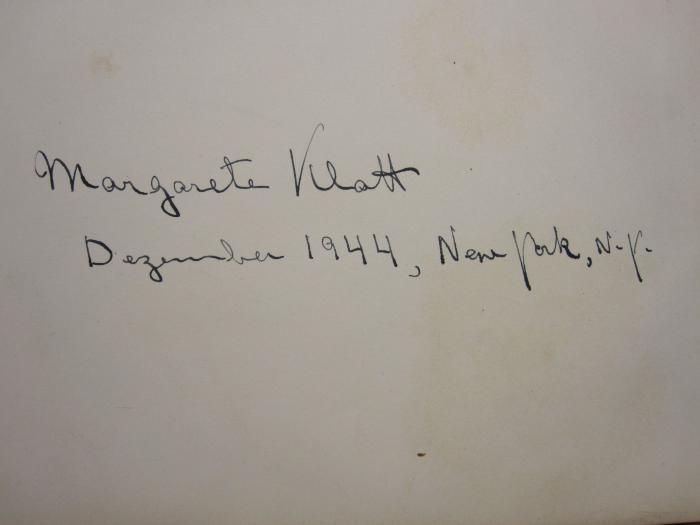 Margarete Klatt
Dezember 1944, New York, N.Y.